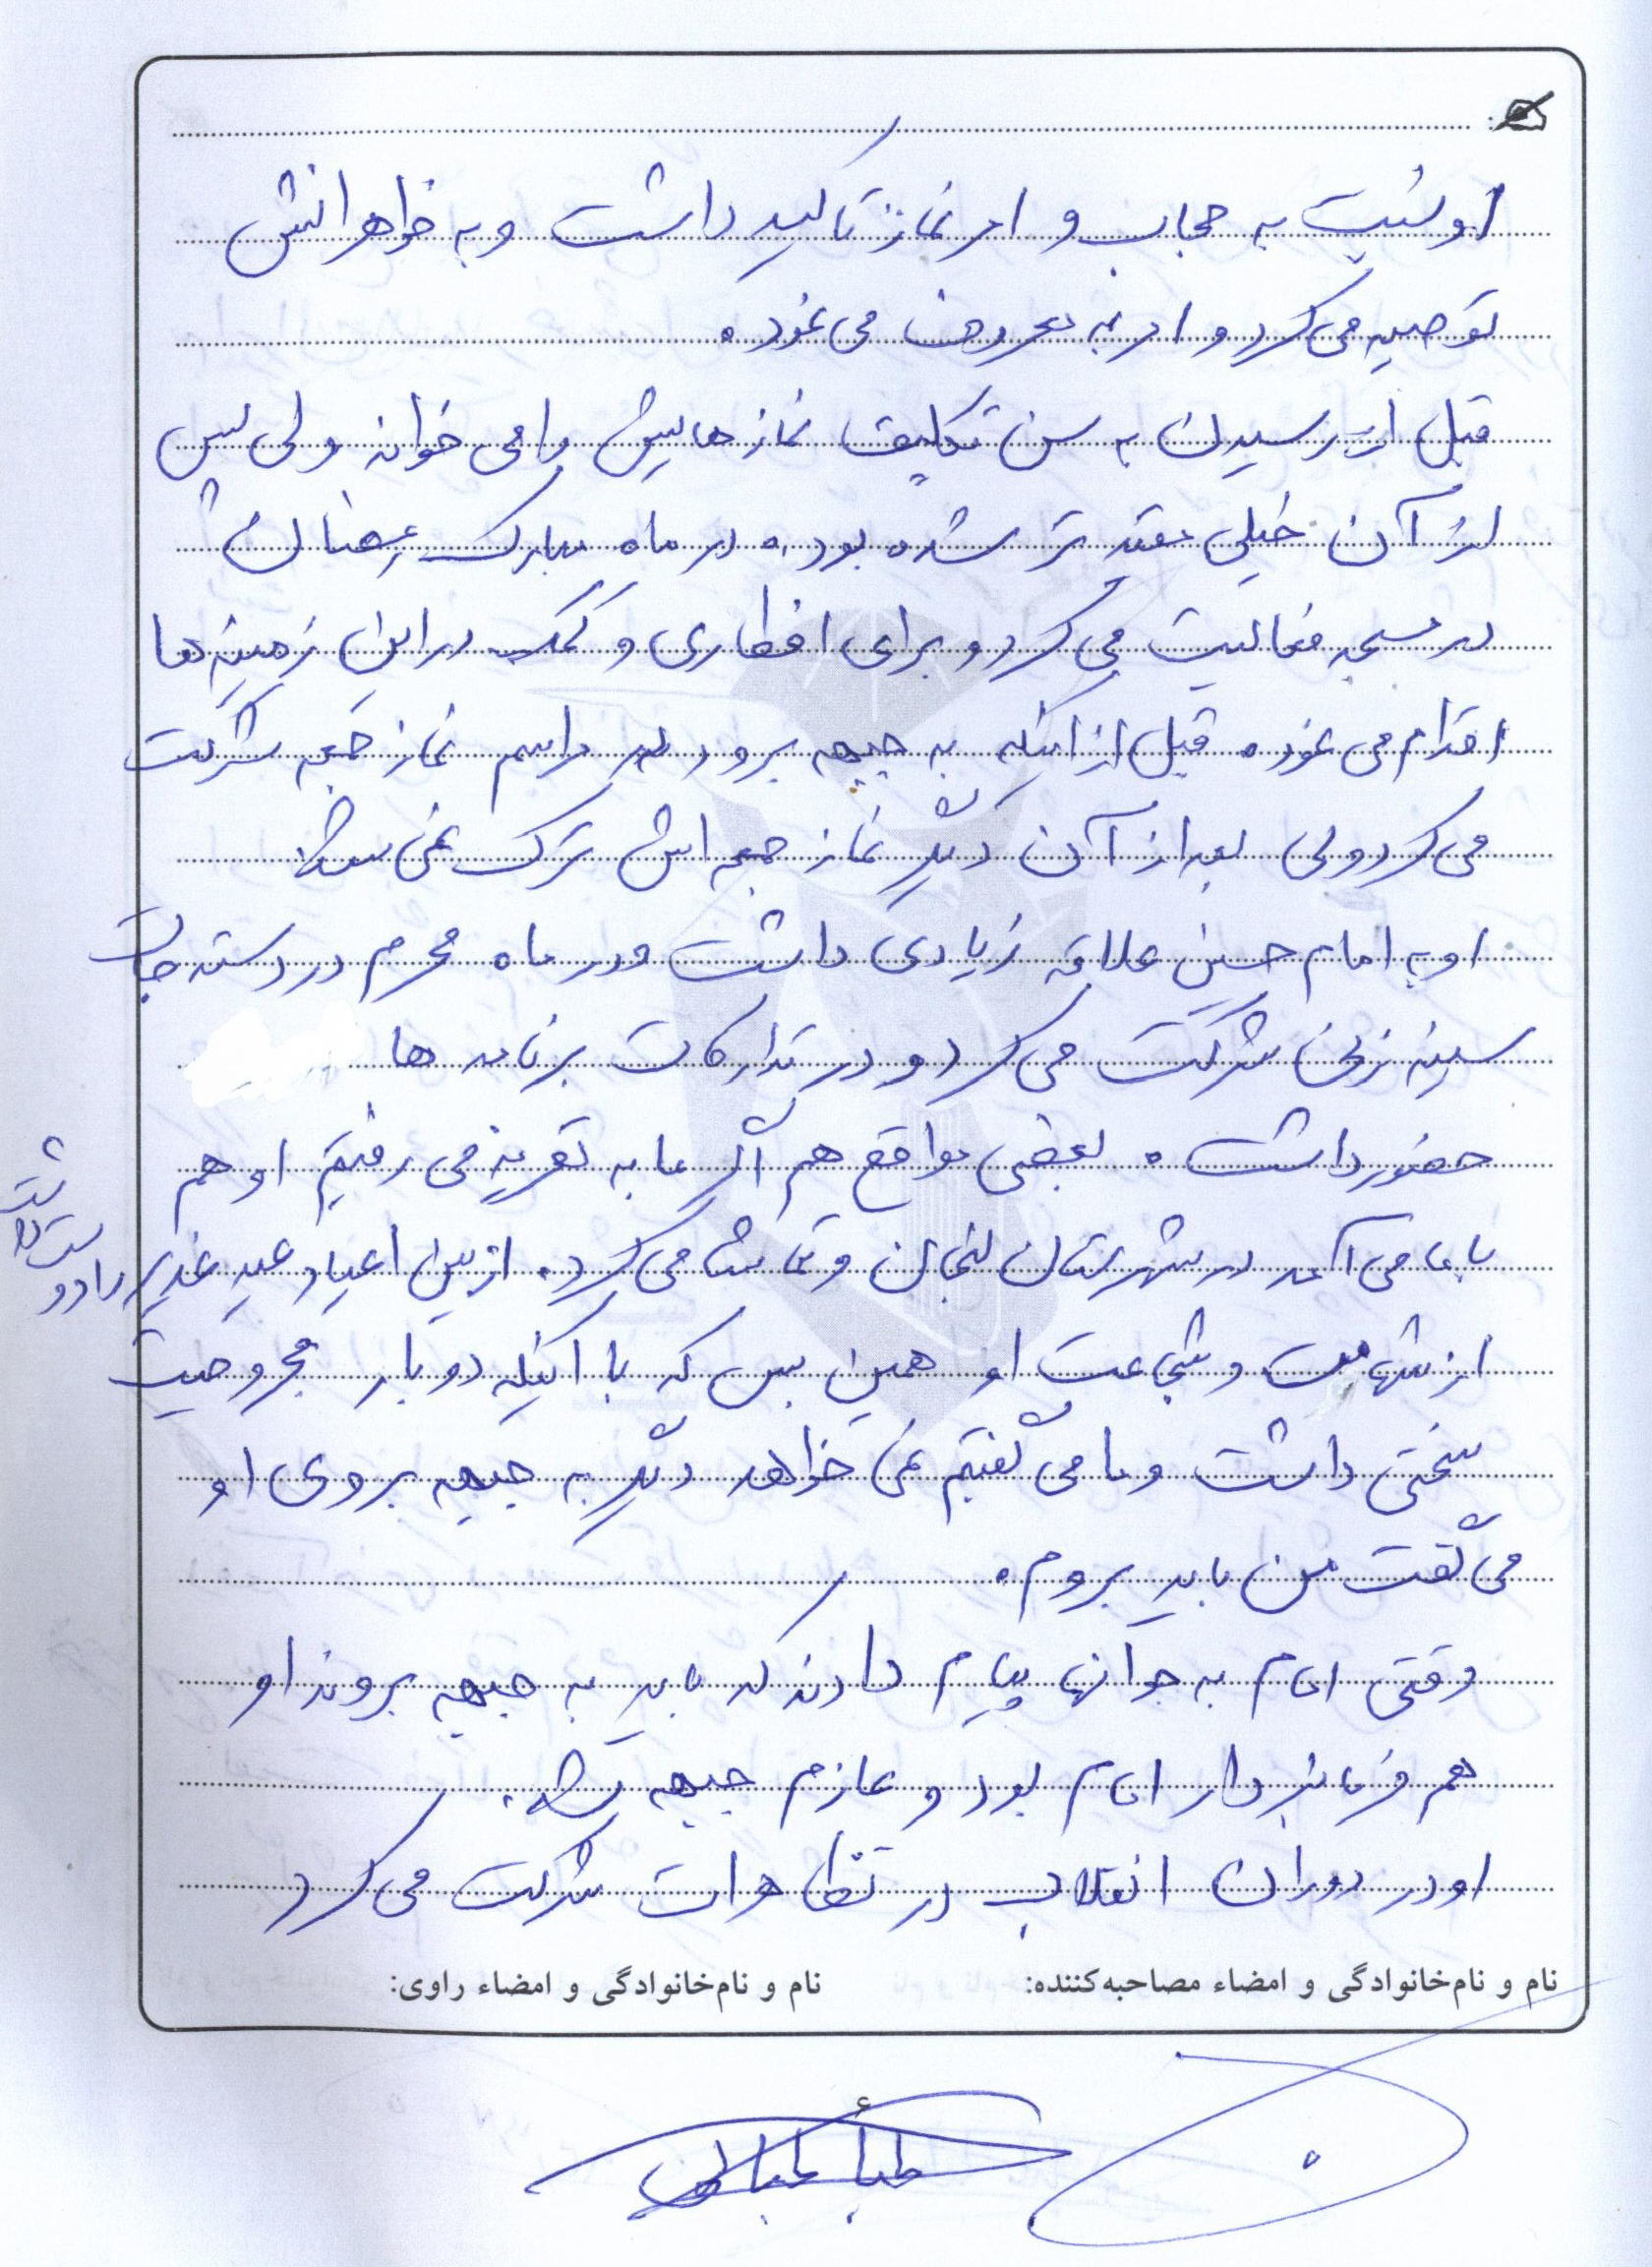 او نسبت به حجاب و امر نماز تاکید داشت و به خواهرانش
توصیه می کرد و امر به معروف می نمود.
قبل از رسیدن به سن تکلیف نمازهایش را می خواند ولی پس
از آن خیلی مقیدتر شده بود. در ماه مبارک رمضان
در مسجد فعالیت می کرد و برای افطاری و کمک در این زمینه ها
اقدام می نمود. قبل از اینکه به جبهه برود در مراسم نماز جمعه شرکت
می کرد ولی بعد از آن دیگر نماز جمعه اش ترک نمی شد.
او به امام حسین علاقه زیادی داشت و در ماه محرم در دسته جات
سینه زنی شرکت می کرد و در تدارکات برنامه ها
حضور داشت. بعضی مواقع هم اگر ما به تعزیه می رفتیم او هم
با ما می آمد در شهرستان لنجان و تماشا می کرد. از بین اعیاد عید غدیر را دوست داشت
از شهامت و شجاعت او همین بس که با اینکه دو بار مجروحیت
سختی داشت و ما می گفتیم نمی خواهد دیگر به جبهه بروی او
می گفت من باید بروم.
وقتی امام به جوانها پیام دادند که باید به جبهه بروند او
هم فرمانبردار امام بود و عازم جبهه شد.
او در دوران انقلاب در تظاهرات شرکت می کرد
نام و نام‌خانوادگی و امضاء مصاحبه‌کننده: نام و نام‌خانوادگی و امضاء راوی: